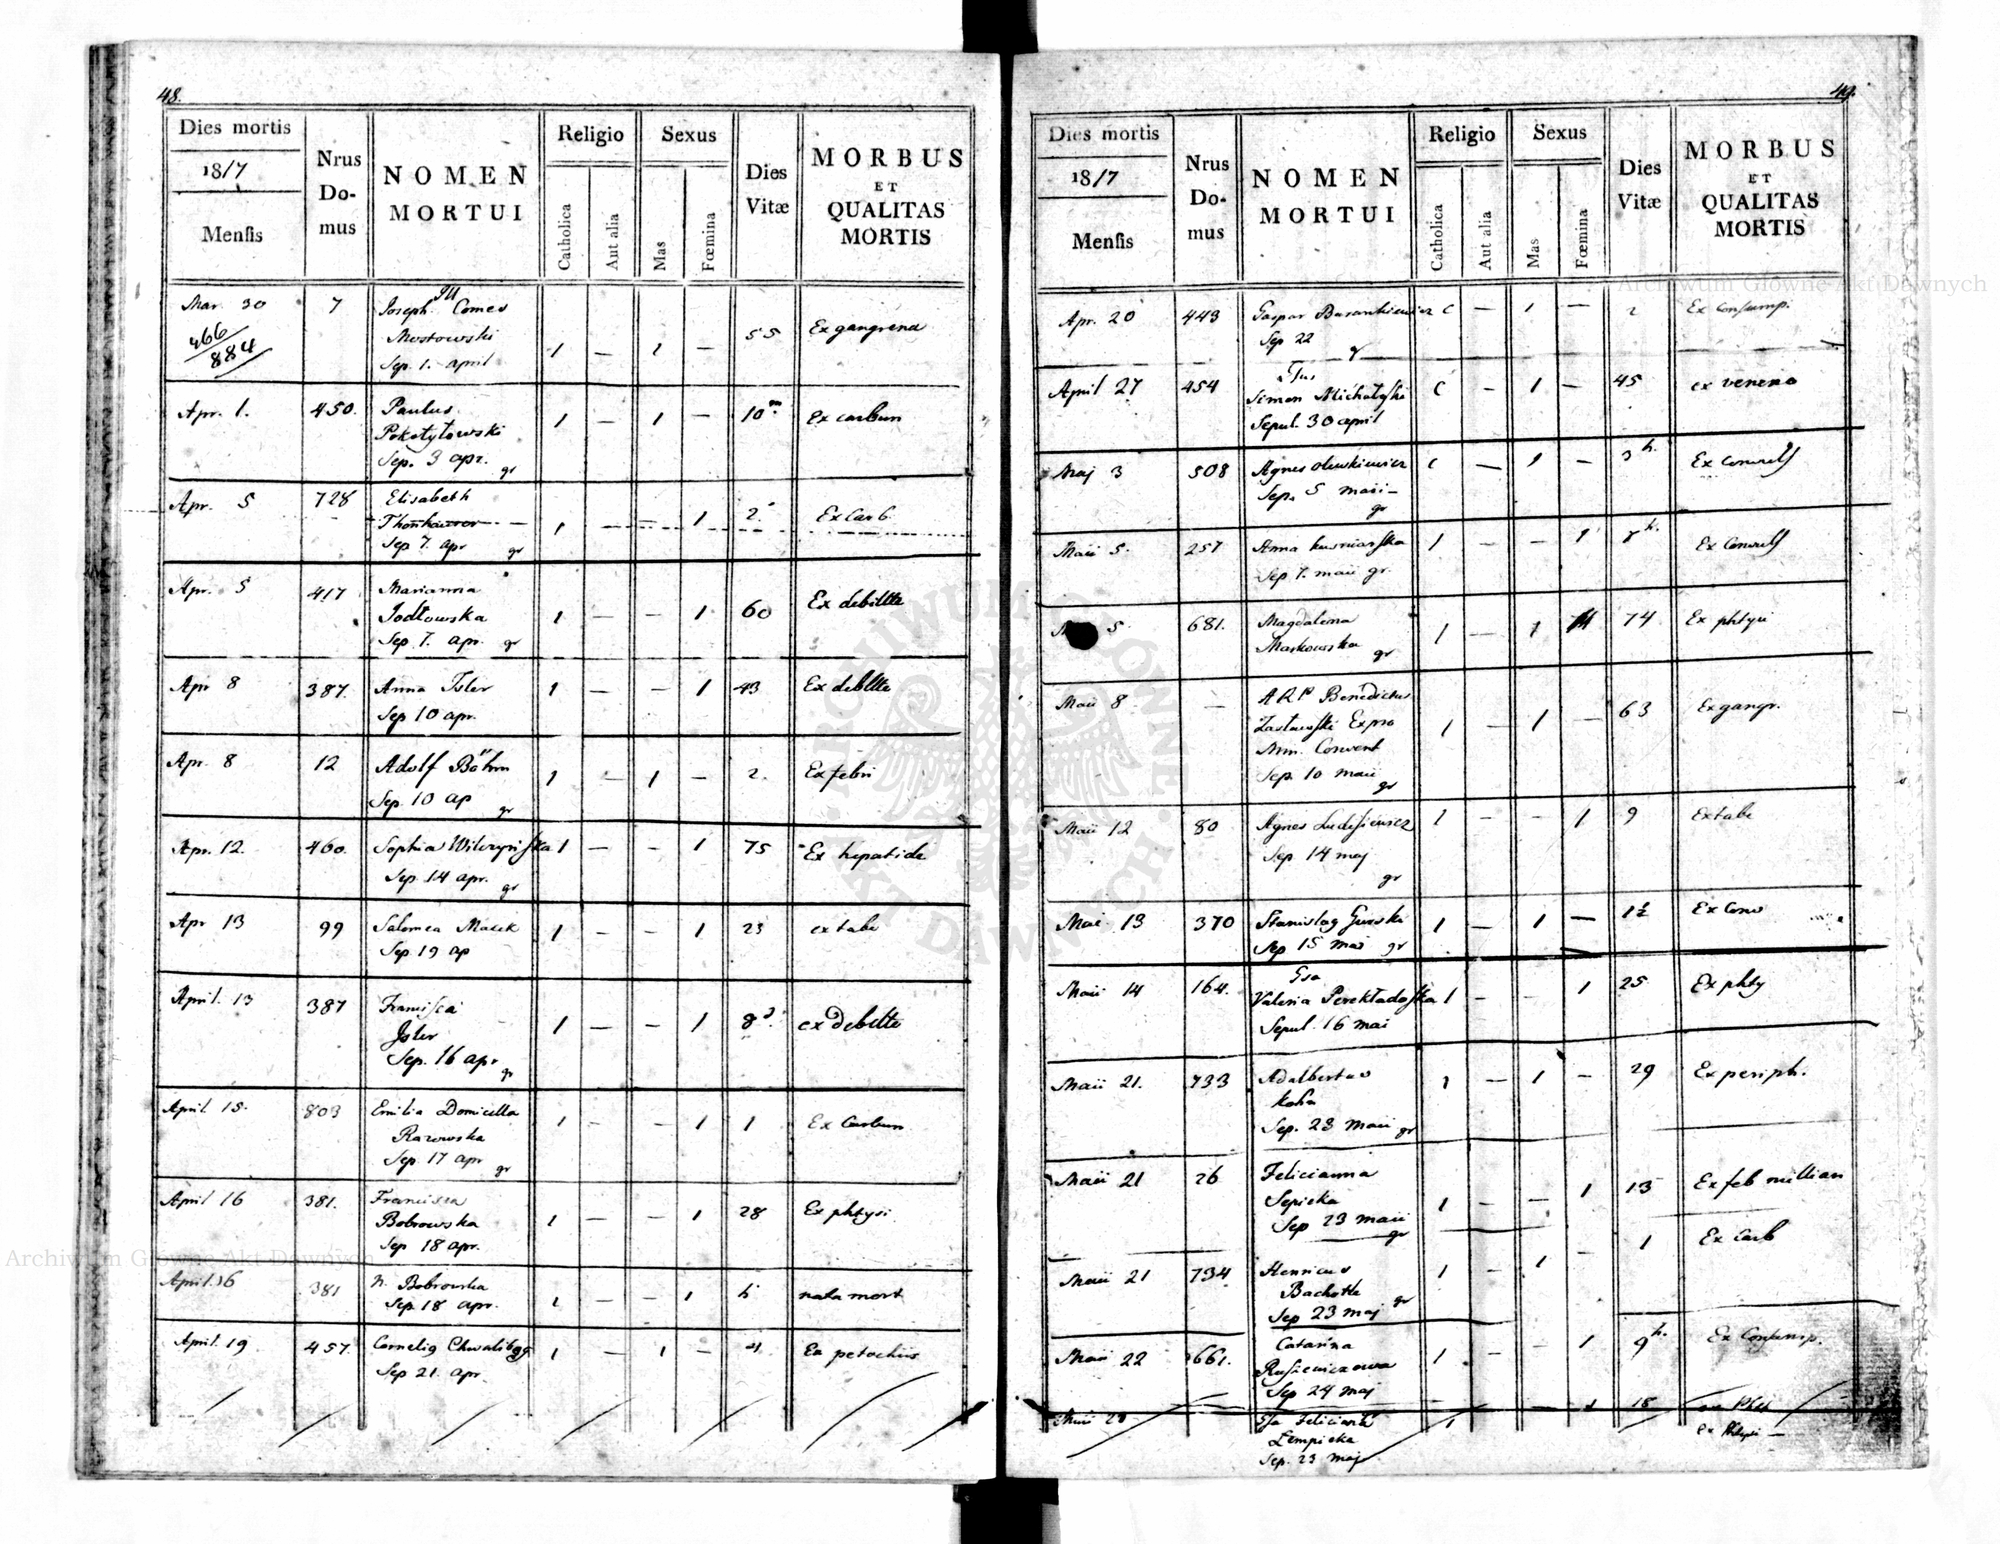 48.
Dies mortis
1817
Mensis
Nrus Domus
NOMEN MORTUI
Religio
Catholica
Aut alia
Sexus
Mas
Fœmina
Dies Vitæ
MORBUS ET QUALITAS MORTIS
Mar. 30 7 Joseph Ill Comes 1 — 1 — 55 Ex gangrena
466/884 Mostowski
Sep. 1. april
Apr. 1. 450. Paulus 1 — 1 — 10 m. Ex carbun
Pokotyłowski
Sep. 3 apr. gr
Apr. 5 728 Elisabeth 1 — — 1 2. Ex Carb.
Sep 7. apr gr
Apr. 5 417 Marianna 1 — — 1 60 Ex debilitte
Jodłowska
Sep. 7. apr. gr
Apr 8 387. Anna Isler 1 — — 1 43 Ex debltte
Sep 10 apr.
Apr. 8 12 Adolf Böhm 1 — 1 — 2. Ex febri
Sep. 10 ap gr
Apr. 12. 460. Sophia Wilczyńska 1 — — 1 75 Ex hepatide
Sep. 14 apr. gr
Apr 13 99 Salomea Macek 1 — — 1 23 ex tabe
Sep 19 ap
April. 13 387 Francisca 1 — — 1 8 d. ex debiltte
Isler
Sep. 16 apr gr
April 15. 803 Emilia Domicella 1 — — 1 1 Ex Carbun
Razowska
Sep. 17 apr gr
April 16 381. Francisca 1 — — 1 28 Ex phtysi
Bobrowska
Sep 18 apr.
April. 16 381 N. Bobrowska 1 — — 1 h nata mort
Sep 18 apr.
April. 19 457. 1 — 1 — Ex petochiis
Sep 21. apr.
49.
Dies mortis
1817
Mensis
Nrus Domus
NOMEN MORTUI
Religio
Catholica
Aut alia
Sexus
Mas
Fœmina
Dies Vitæ
MORBUS ET QUALITAS MORTIS
Apr. 20 443 Gaspar Barankiewicz C — 1 — 2 Ex Consump.
Sep 22 gr
April 27 454 Gsus C — 1 — 45 ex veneno
Simon Michałski
Sepul. 30 april
Maj 3 508 Agnes C — 1 — 3 h. Ex Convuls
Sep. 5 maii — gr
Maii 5. 257 Anna 1 — — 1 8 h. Ex Convuls
Sep 7. maii gr.
5. 681. Magdalena 1 — 1 74 Ex phtysi
Maskowska gr
Maii 8 — A R P Benedictus 1 — 1 — 63 Ex gangr.
Zasławski Expro
Min. Convent
Sep. 10 maii gr
Maii 12 80 Agnes 1 — — 1 9 Ex tabe
Sep 14 maj gr
Mai. 13 370 Stanislag Gurski 1 — 1 — 1½ Ex Conv
Sep 15 mai gr
Maii 14 164. Gsa 1 — — 1 25 Ex phty
Valeria Perekładoska
Sepul. 16 mai
Maii 21. 733 Adalbertus 1 — 1 — 29 Ex periph.
Sep. 23 maii gr
Maii 21 26 Felicianna 1 — — 1 13 Ex feb millian
Sepicka
Sep 23 maii gr
Maii 21 734 Henricus 1 — 1 — 1 Ex Carb
Bachotte
Sep 23 maj gr
Maii 22 661. Catarina 1 — — 1 9 h. Ex Consump.
Rusiewiczowa
Sep 24 maj
Gsa 1 — — 1 18
Lempicka Ex Phtysi —
Sep. 23 maj
Archiwum Główne Akt Dawnych
Archiwum Główne Akt Dawnych
ARCHIWUM GŁÓWNE AKT DAWNYCH